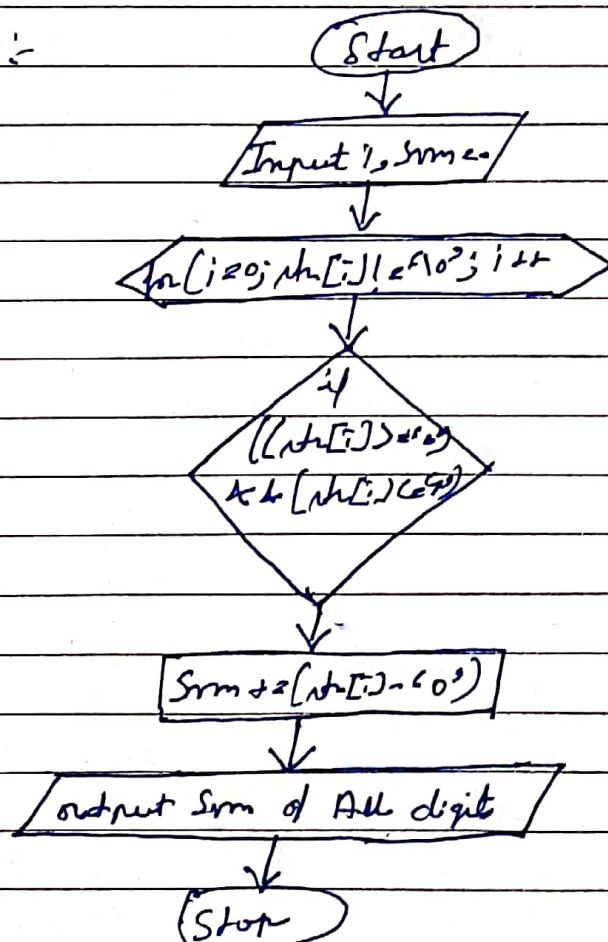 :-
Start
Input i, Sum = 0
for(i=0; str[i]!='\0'; i++
if
((str[i])>='0')
&& (str[i]<='9')
Sum += (str[i]-'0')
output Sum of All digit
Stop